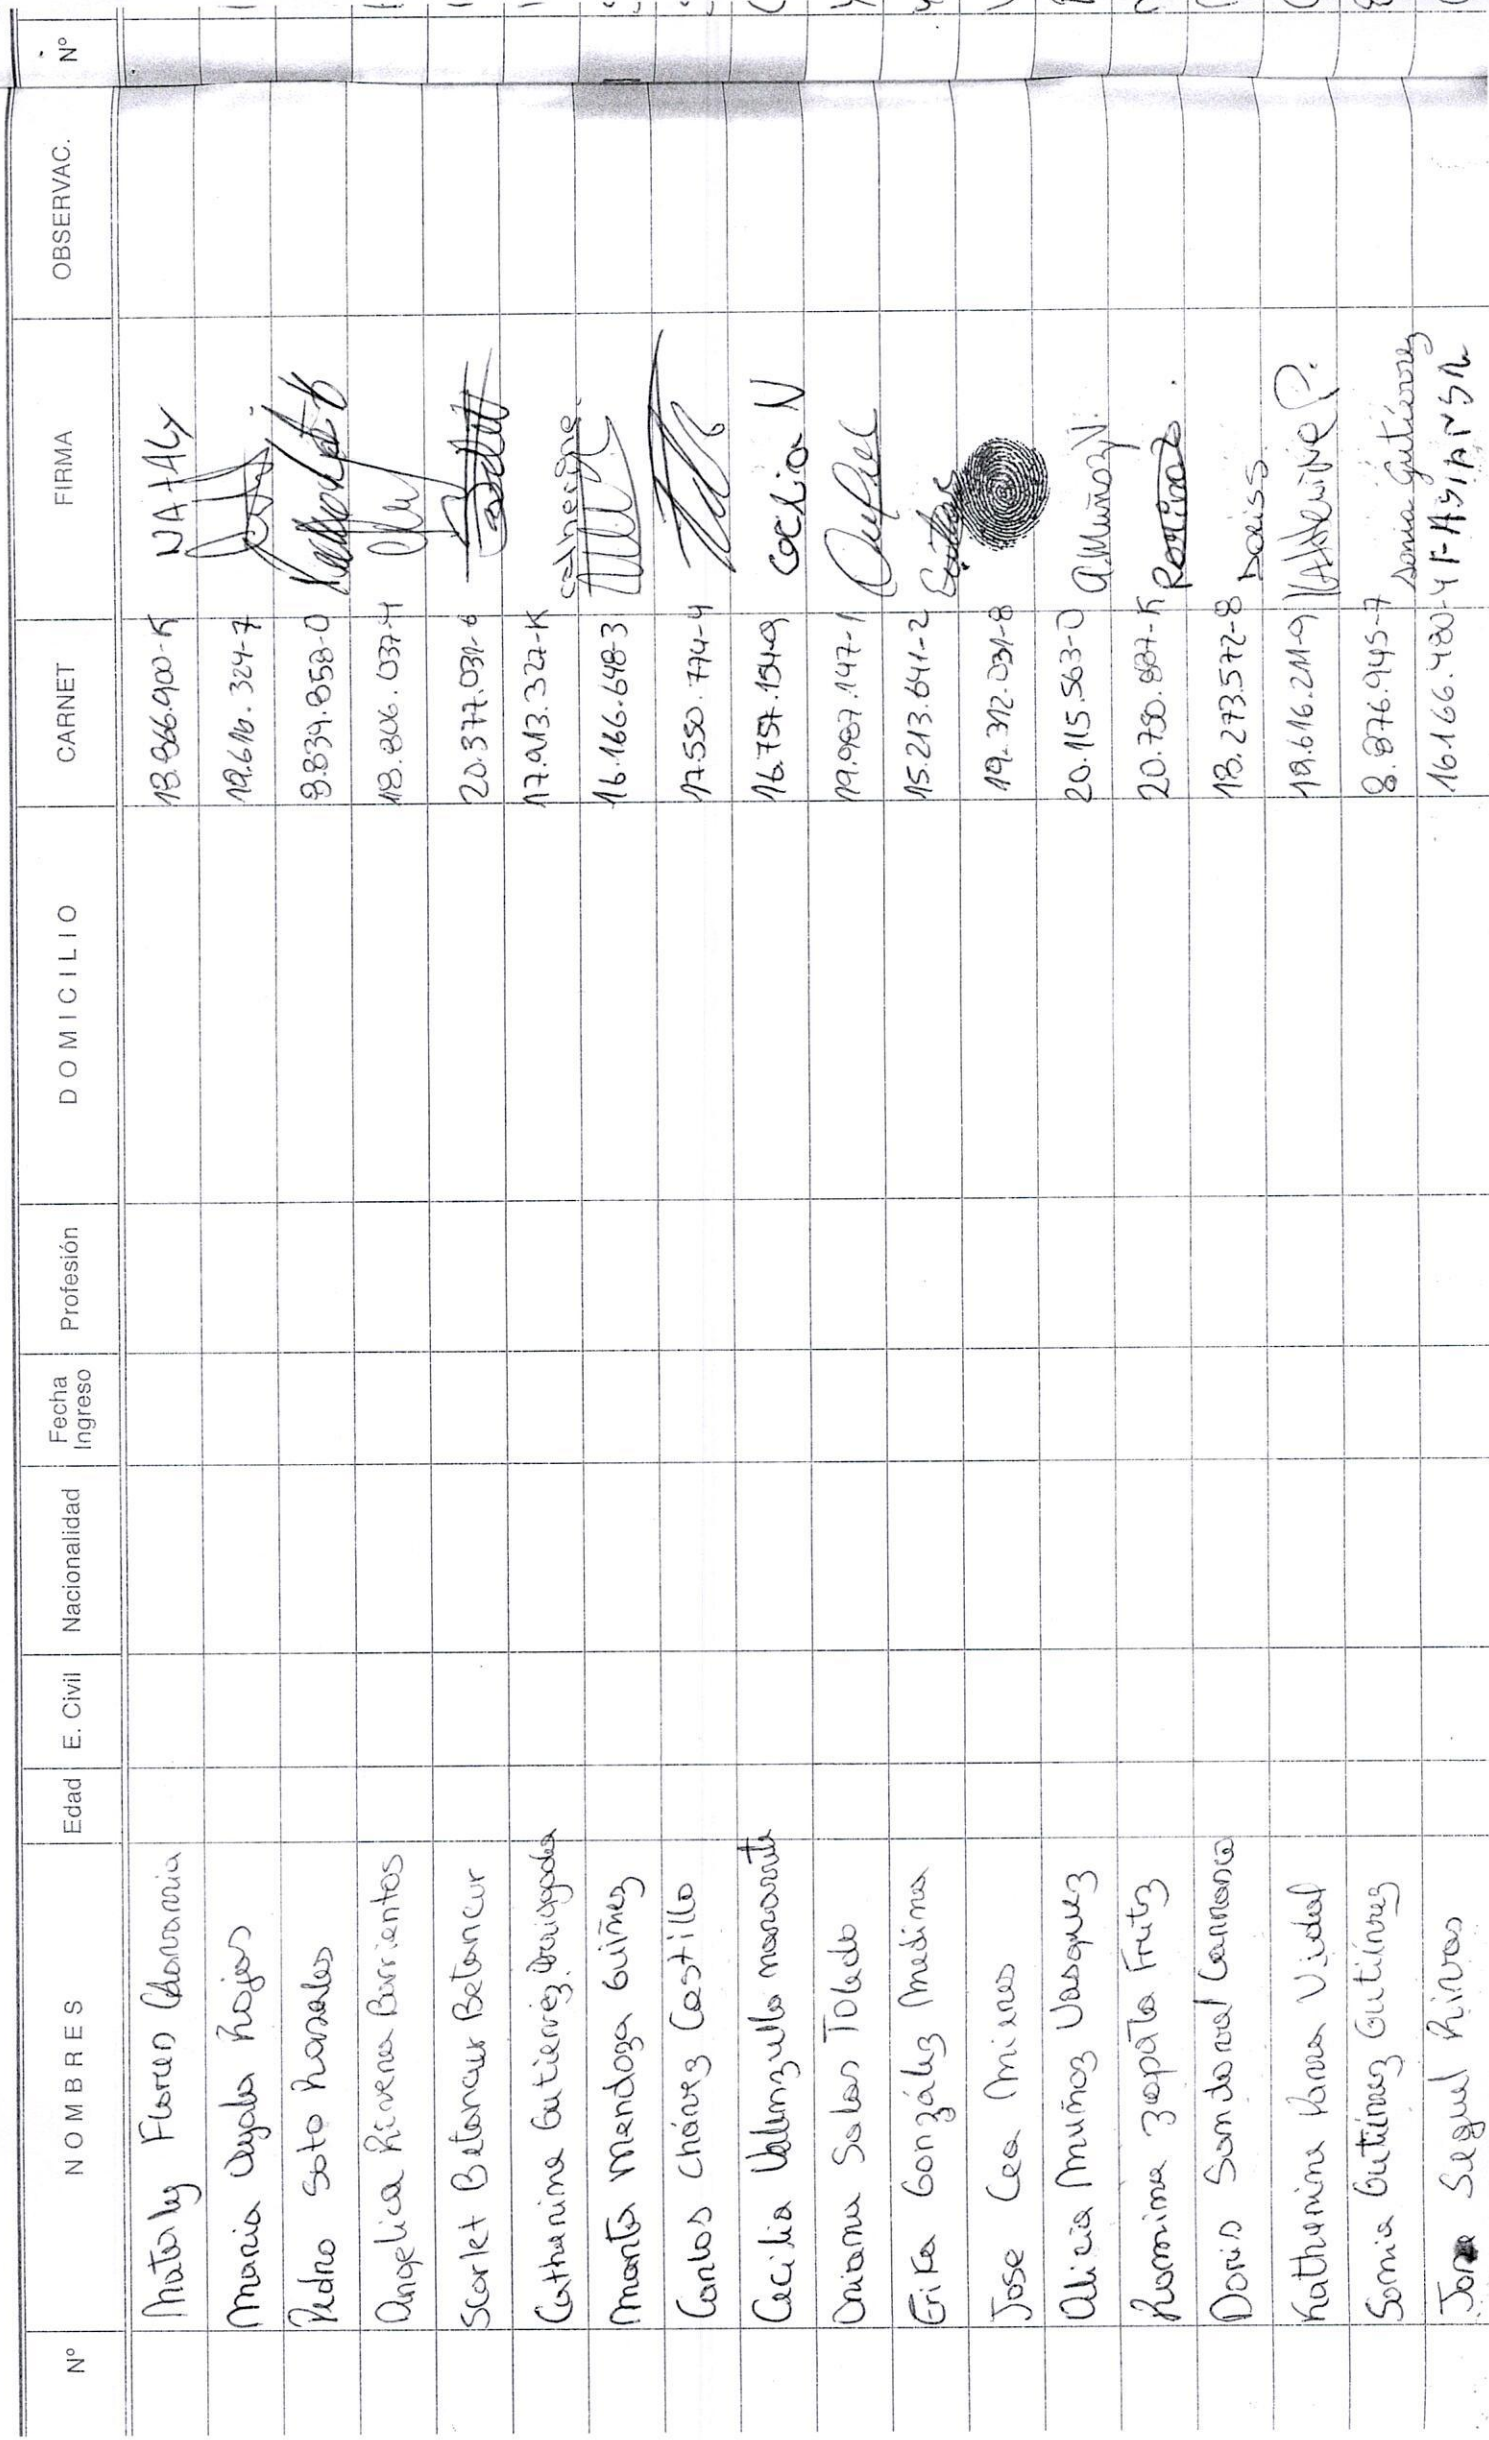 Nº NOMBRES Edad E. Civil Nacionalidad Fecha Ingreso Profesión DOMICILIO CARNET FIRMA OBSERVAC. Nº
Nataly Flores 18.866.900-K NAtAly
Maria Ayala Rojas 19.616.324-7
Pedro Soto Rosales 8.839.858-0
Angelica Rivera Barrientos 18.806.037-4
Scarlet Betancur Betancur 20.377.031-6
Catherine Gutierrez 17.913.327-K catherine.
Marta Mendoza Guiñez 16.166.648-3
Carlos Chávez Castillo 17.550.774-4
Cecilia Valenzuela Navarrete 16.757.154-9 CeCiLia N
Oriana Salas Toledo 19.987.147-1
Erika González Medina 15.213.641-2
Jose Cea 19.312.031-8
Alicia Muñoz Vasquez 20.115.563-0 a.muñoz V.
Romina Zapata Frutz 20.750.887-K Romina
Doris Sandoval Carrasco 18.273.572-8 Doriss
Katherine Parra Vidal 19.616.211-9 KAtherine P.
Sonia Gutiérrez Gutiérrez 8.876.945-7 Sonia Gutiérrez
Seguel Rivas 16.166.480-4